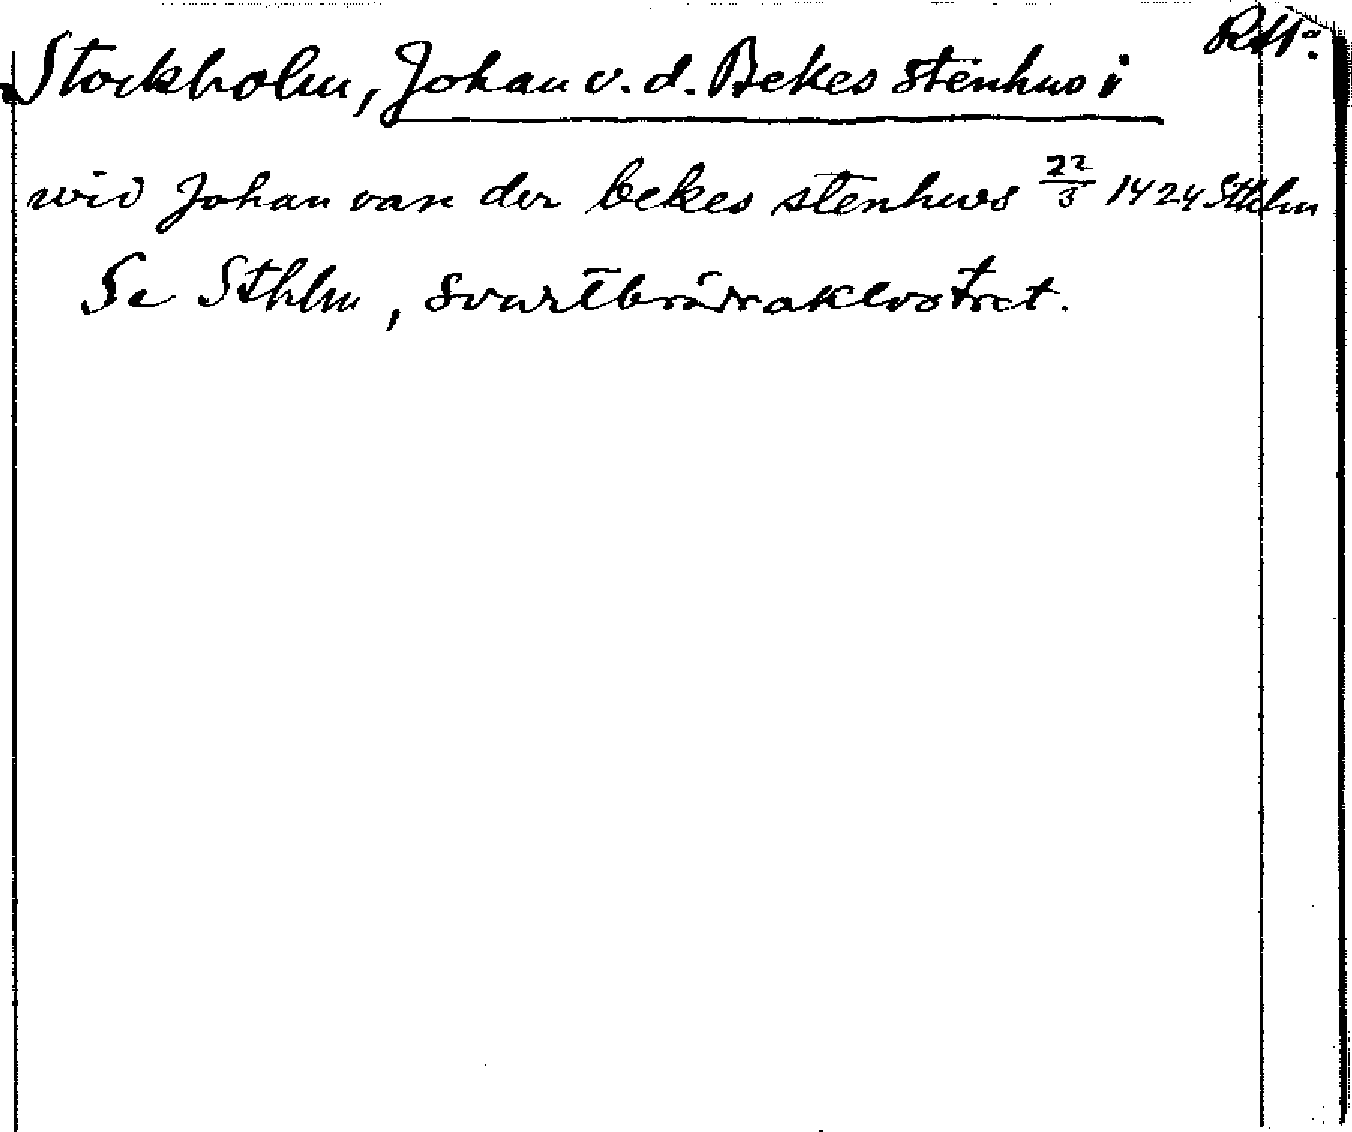 Stockholm, Johan v. d. Bekes stenhus i
wid Johan van der bekes stenhws 22/3 1424 Sthlm
Se Sthlm, svartbrödraklostret.